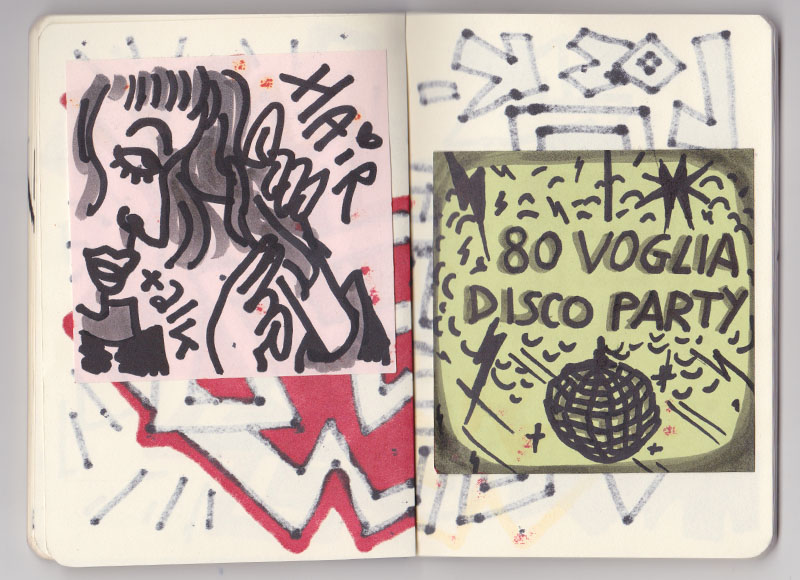 HAIR
talk
80 VOGLIA
DISCO PARTY